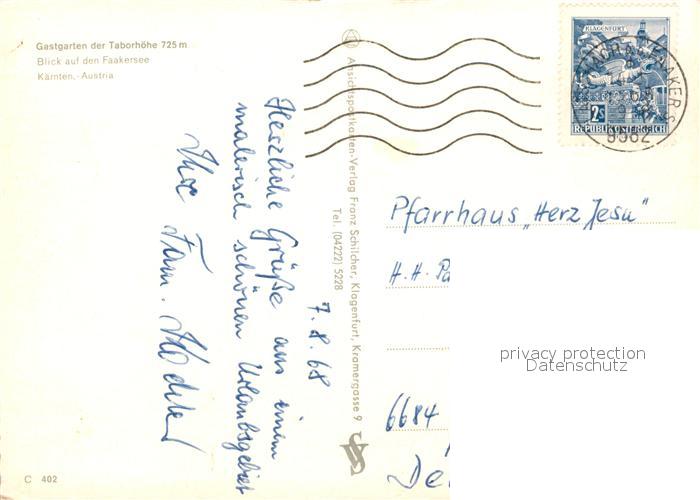 Gastgarten der Taborhöhe 725 m
Blick auf den Faakersee
Kärnten.-Austria
7.8.68
Herzliche Grüße aus einem
malerisch schönen Urlaubsgebiet
Ihre Fam.
Ansichtspostkarten-Verlag Franz Schilcher, Klagenfurt, Kramergasse 9
Tel. (04222) 5228
KLAGENFURT
2S
REPUBLIK ÖSTERREICH
Pfarrhaus „Herz Jesu"
H. H. Pa
6684
privacy protection
Datenschutz
C 402